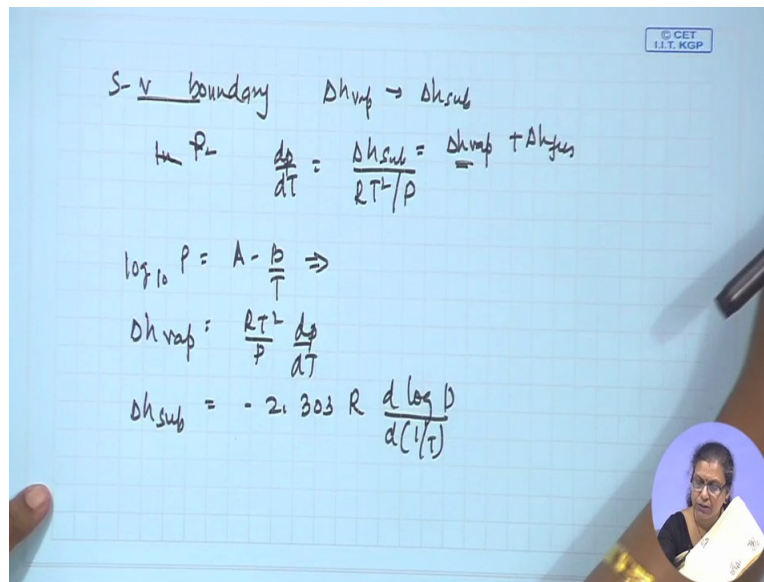 © CET
I.I.T. KGP
S-v boundary Δhvap → Δhsub
ln P- dp/dT = Δhsub/(RT²/P) = Δhvap + Δhfus
log10 P = A - B/T ⇒
Δhvap = RT²/P dp/dT
Δhsub = - 2.303 R d log P/d(1/T)